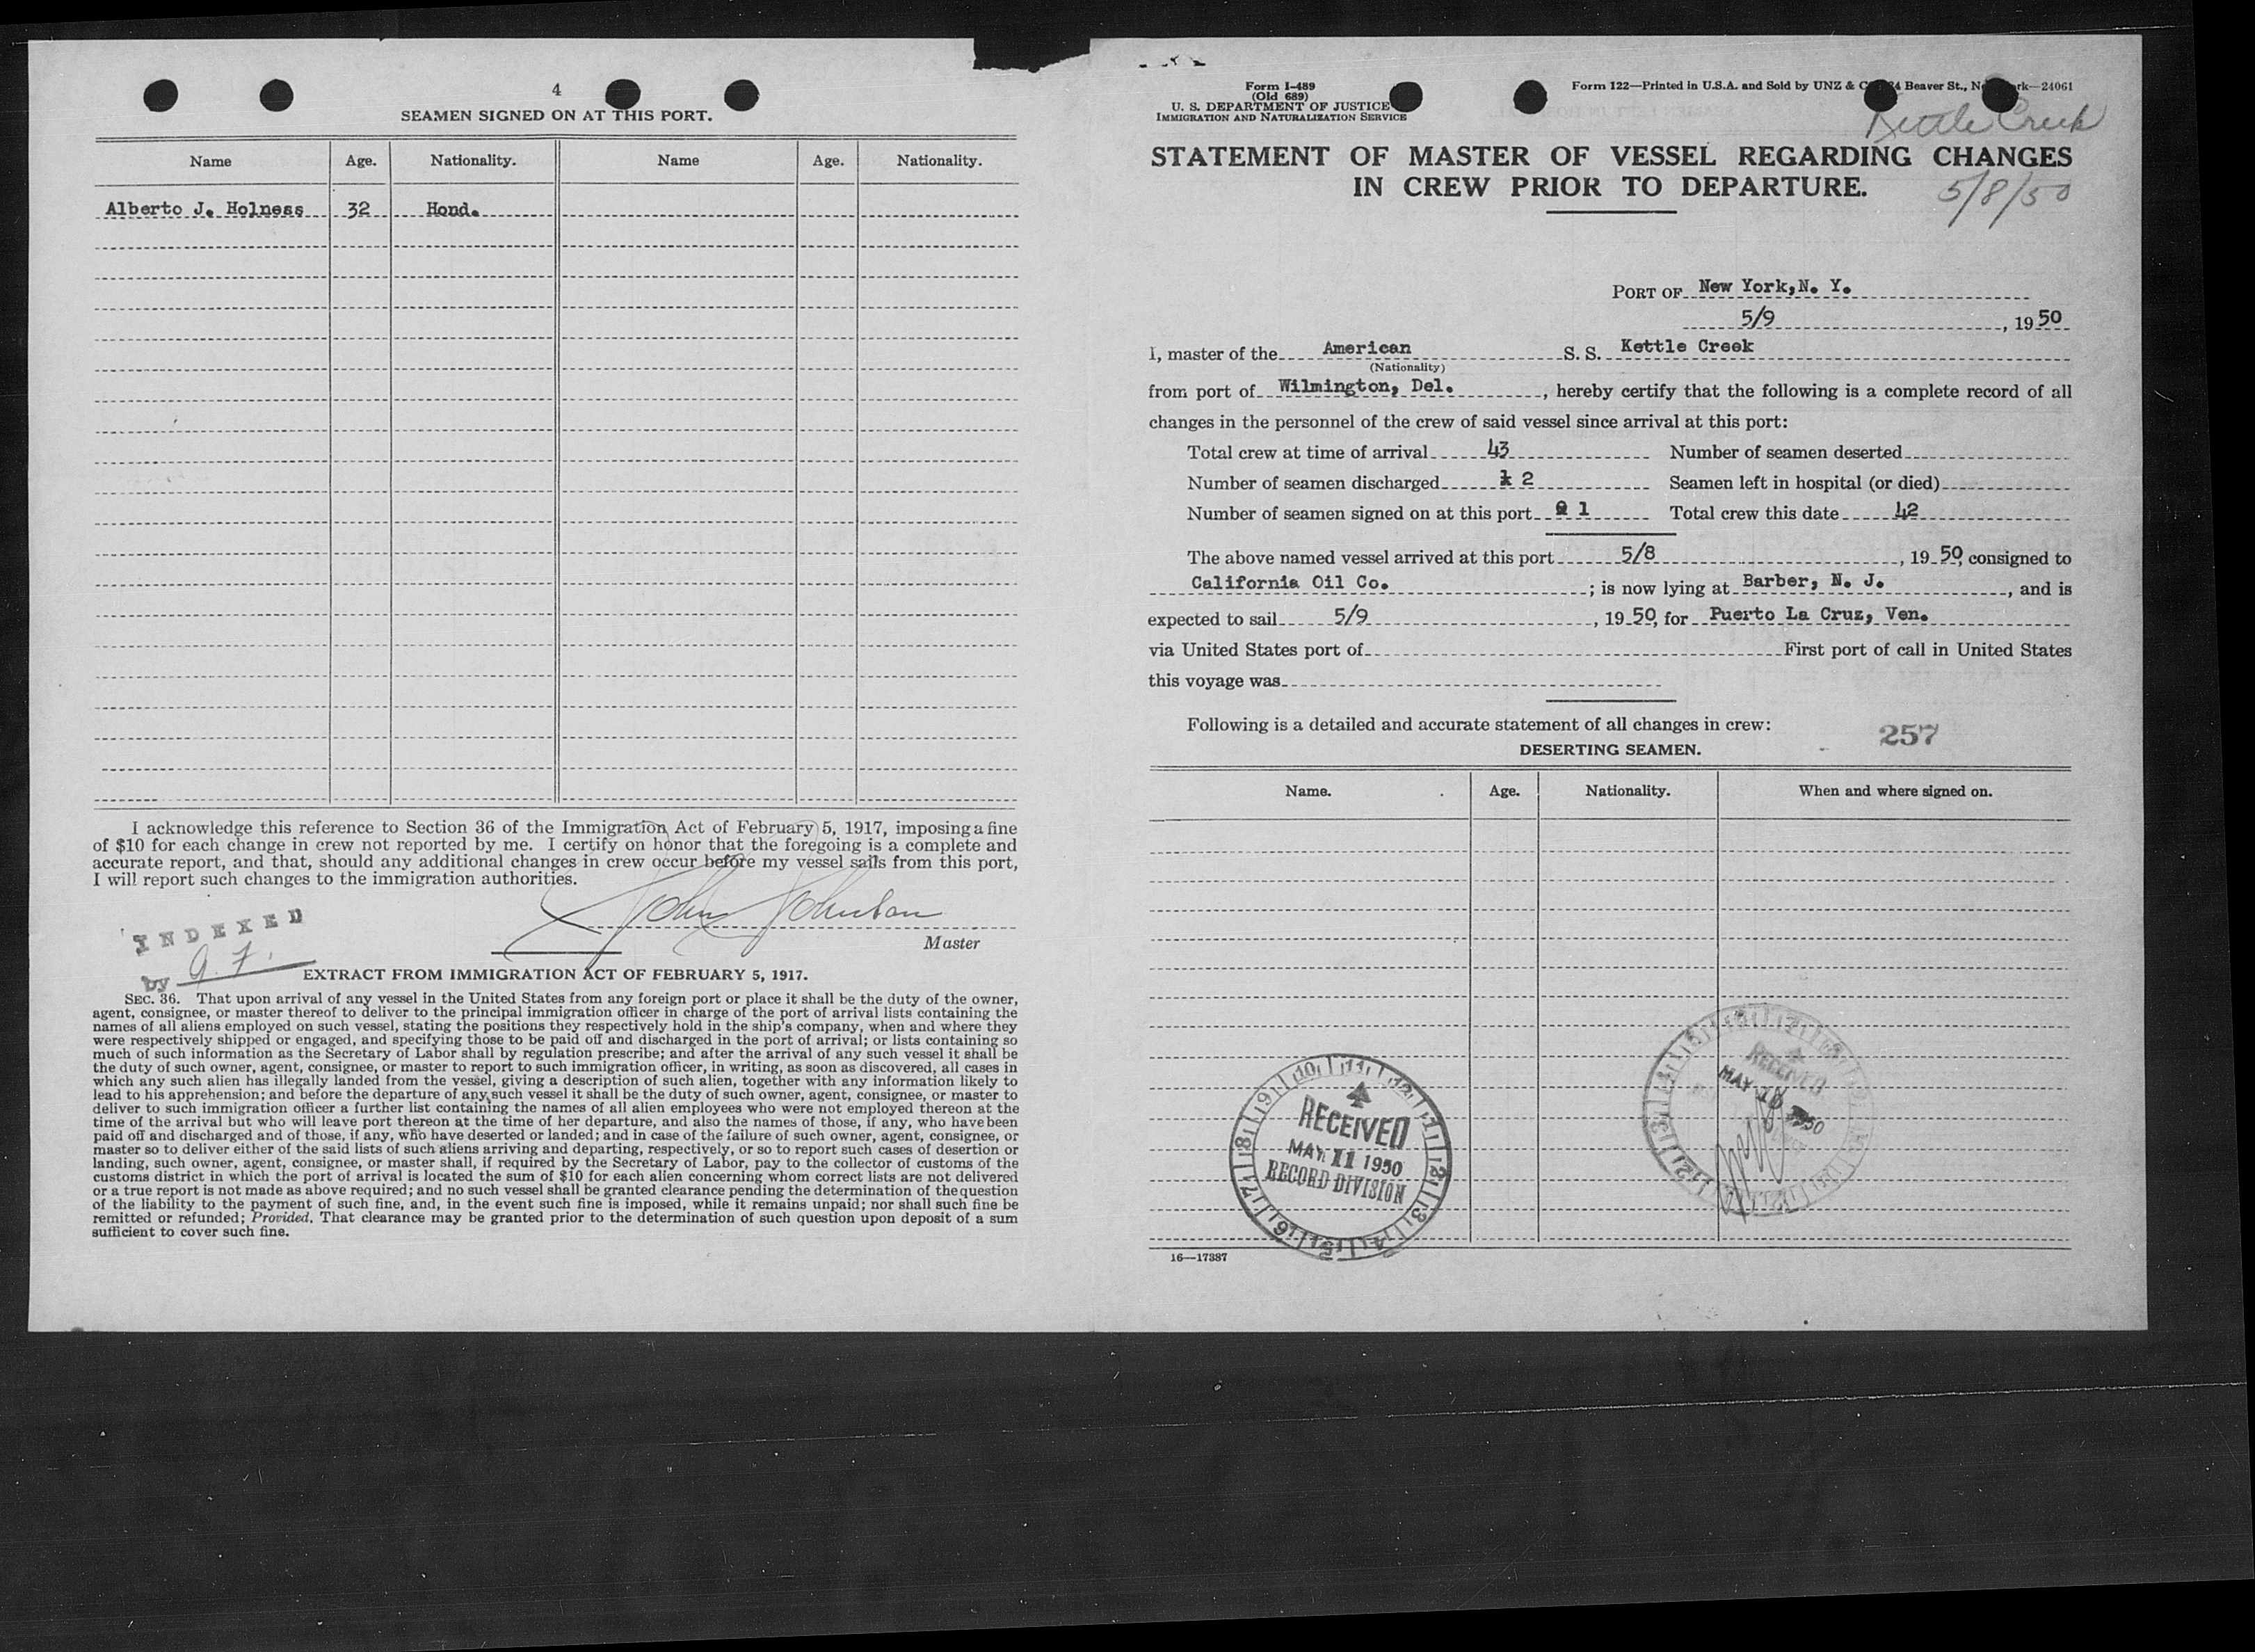 4
SEAMEN SIGNED ON AT THIS PORT.
Name Age. Nationality. Name Age. Nationality.
Alberto J. Holness 32 Hond.
I acknowledge this reference to Section 36 of the Immigration Act of February 5, 1917, imposing a fine
of $10 for each change in crew not reported by me. I certify on honor that the foregoing is a complete and
accurate report, and that, should any additional changes in crew occur before my vessel sails from this port,
I will report such changes to the immigration authorities.
John Johnson
Master
INDEXED
by
EXTRACT FROM IMMIGRATION ACT OF FEBRUARY 5, 1917.
SEC. 36. That upon arrival of any vessel in the United States from any foreign port or place it shall be the duty of the owner,
agent, consignee, or master thereof to deliver to the principal immigration officer in charge of the port of arrival lists containing the
names of all aliens employed on such vessel, stating the positions they respectively hold in the ship's company, when and where they
were respectively shipped or engaged, and specifying those to be paid off and discharged in the port of arrival; or lists containing so
much of such information as the Secretary of Labor shall by regulation prescribe; and after the arrival of any such vessel it shall be
the duty of such owner, agent, consignee, or master to report to such immigration officer, in writing, as soon as discovered, all cases in
which any such alien has illegally landed from the vessel, giving a description of such alien, together with any information likely to
lead to his apprehension; and before the departure of any such vessel it shall be the duty of such owner, agent, consignee, or master to
deliver to such immigration officer a further list containing the names of all alien employees who were not employed thereon at the
time of the arrival but who will leave port thereon at the time of her departure, and also the names of those, if any, who have been
paid off and discharged and of those, if any, who have deserted or landed; and in case of the failure of such owner, agent, consignee, or
master so to deliver either of the said lists of such aliens arriving and departing, respectively, or so to report such cases of desertion or
landing, such owner, agent, consignee, or master shall, if required by the Secretary of Labor, pay to the collector of customs of the
customs district in which the port of arrival is located the sum of $10 for each alien concerning whom correct lists are not delivered
or a true report is not made as above required; and no such vessel shall be granted clearance pending the determination of the question
of the liability to the payment of such fine, and, in the event such fine is imposed, while it remains unpaid; nor shall such fine be
remitted or refunded; Provided, That clearance may be granted prior to the determination of such question upon deposit of a sum
sufficient to cover such fine.
Form I-489
(Old 689)
U. S. DEPARTMENT OF JUSTICE
IMMIGRATION AND NATURALIZATION SERVICE
Form 122—Printed in U.S.A. and Sold by UNZ & Beaver St., 24061
Kettle Creek
STATEMENT OF MASTER OF VESSEL REGARDING CHANGES
IN CREW PRIOR TO DEPARTURE.
5/8/50
PORT OF New York, N. Y.
5/9, 19 50
I, master of the American S. S. Kettle Creek
(Nationality)
from port of Wilmington, Del., hereby certify that the following is a complete record of all
changes in the personnel of the crew of said vessel since arrival at this port:
Total crew at time of arrival 43 Number of seamen deserted
Number of seamen discharged 2 Seamen left in hospital (or died)
Number of seamen signed on at this port 1 Total crew this date 42
The above named vessel arrived at this port 5/8, 19 50, consigned to
California Oil Co.; is now lying at Barber, N. J., and is
expected to sail 5/9, 19 50, for Puerto La Cruz, Ven.
via United States port of First port of call in United States
this voyage was
Following is a detailed and accurate statement of all changes in crew:
257
DESERTING SEAMEN.
Name. Age. Nationality. When and where signed on.
RECEIVED
MAY 11 1950
RECORD DIVISION
RECEIVED
MAY 1950
16—17387